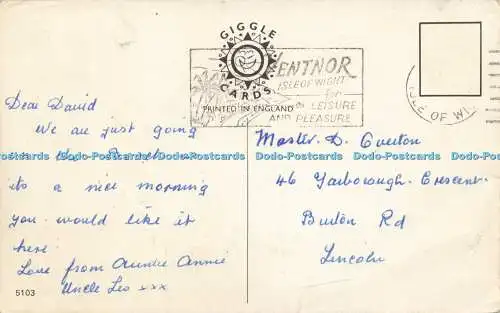 GIGGLE
CARDS
PRINTED IN ENGLAND
ENTNOR
ISLE OF WIGHT
for
LEISURE
AND PLEASURE
ISLE OF WI
Dear David
We are just going
on the
its a nice morning
you would like it
here
Love from Auntie Annie
Uncle Les xxx
5103
Master. D. Overton
46 Yarborough. Crescent.
Burton Rd
Lincoln
Dado-Postcards Dado-Postcards Dado-Postcards Dado-Postcards Dado-Postcards Dado-Postcards